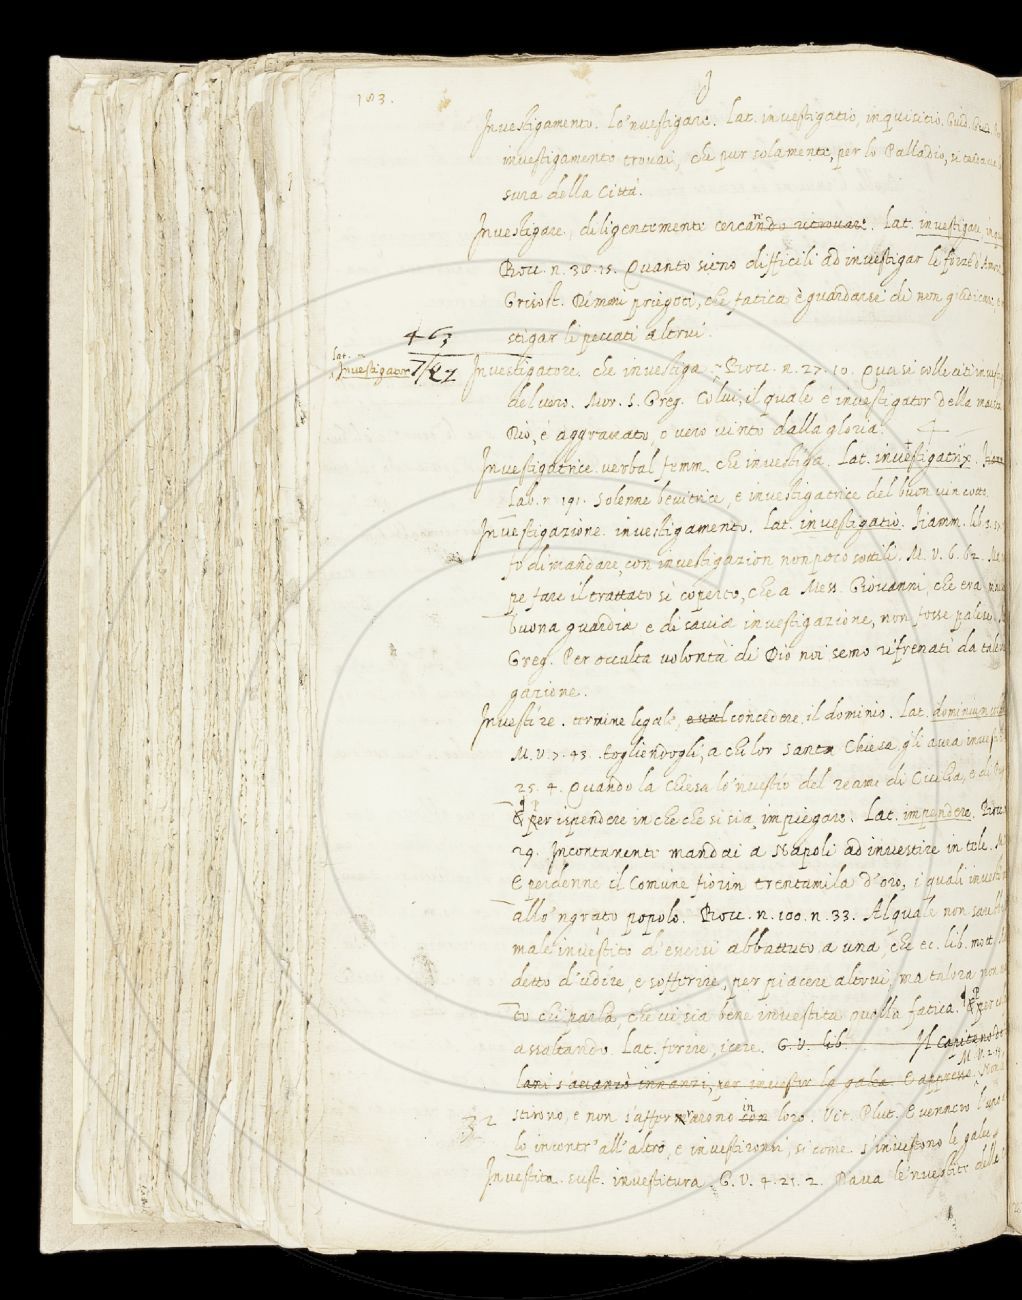 183.
J
Investigamento. Lo'nvestigare. Lat. investigatio, inquisitio. Guid. Giud.
investigamento trovai, che pur solamente, per lo Palladio, si
sura della Città.
Investigare, diligentemente cercando ritrovare. Lat. investigare,
Bocc. n. 36. 15. Quanto sieno difficili ad investigar le forze d'Amore
Grisost. Rimani priegoti, che fatica è guardarsi di non giudicare,
stigar li peccati altrui.
463
Lat.
Investigator 7/22 Investigatore. che investiga. Bocc. n. 27. 10. Quasi solleciti
del vero. Mor. S. Greg. Colui, il quale è investigator della
Dio, è aggravato, o vero vinto dalla gloria.
Investigatrice. verbal femm. che investiga. Lat. investigatrix.
Lab. n. 191. Solenne bevitrice, e investigatrice del buon vin cotto.
Investigazione. investigamento. Lat. investigatio. Fiamm. lib.
fo dimandare, con investigazion non poco sottili. M. V. 6. 62.
pe fare il trattato sì coperto, che a Mess. Giovanni, che era
buona guardia e di savia investigazione, non fosse palese.
Greg. Per occulta volontà di Dio noi semo rifrenati da
gazione.
Investire. termine legale, concedere il dominio. Lat. dominium
M. V. 7. 43. togliendogli, a chi lor santa Chiesa gli avea
25. 4. Quando la Chiesa lo'nvestio del reame di Cicilia, e di
per ispendere in che che si sia, impiegare. Lat. impendere. Bocc.
29. Incontanente mandai a Napoli ad investire in tele.
E perdenne il Comune fiorin trentamila d'oro, i quali
allo'ngrato popolo. Bocc. n. 100. n. 33. Al quale non
male investito d'essersi abbattuto a una, che ec. lib. mott.
detto d'udire, e sofferire, per piacere altrui, ma talora non
to chi parla, che vi sia bene investita quella fatica. per
assaltando. Lat. ferire, icere. G. V. lib. Il Capitano
lani s'avanzò innanzi, per investir la galea. E appresso
M. V. 2.
stirono, e non s'affermarono in con loro. Vit. Plut. E vennero l'uno
32
lo incontr'all'altro, e investironsi, sì come s'investono le galee
Investita. sust. investitura. G. V. 4. 21. 2. Dava le'nvestite delle